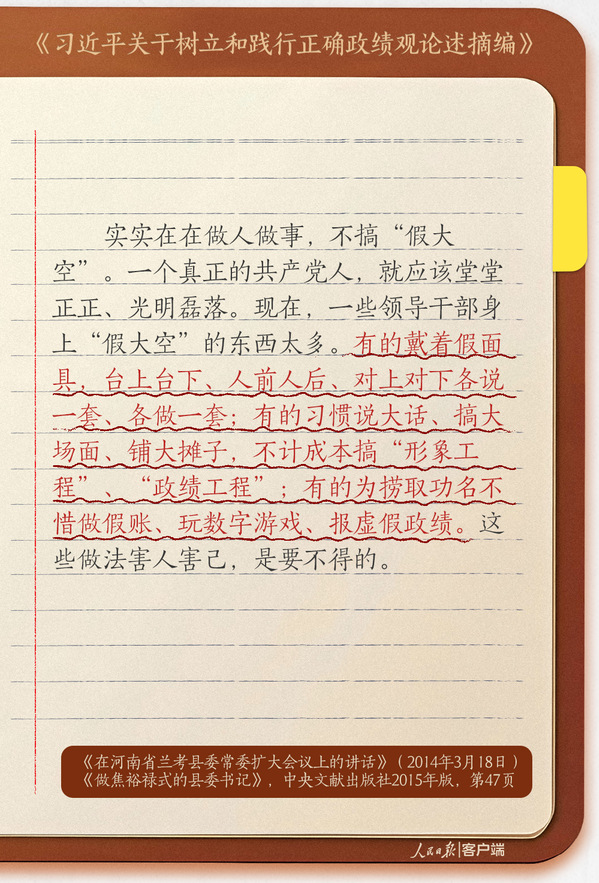 《习近平关于树立和践行正确政绩观论述摘编》
实实在在做人做事，不搞“假大
空”。一个真正的共产党人，就应该堂堂
正正、光明磊落。现在，一些领导干部身
上“假大空”的东西太多。有的戴着假面
具，台上台下、人前人后、对上对下各说
一套、各做一套；有的习惯说大话、搞大
场面、铺大摊子，不计成本搞“形象工
程”、“政绩工程”；有的为捞取功名不
惜做假账、玩数字游戏、报虚假政绩。这
些做法害人害己，是要不得的。
《在河南省兰考县委常委扩大会议上的讲话》（2014年3月18日）
《做焦裕禄式的县委书记》，中央文献出版社2015年版，第47页
人民日报|客户端